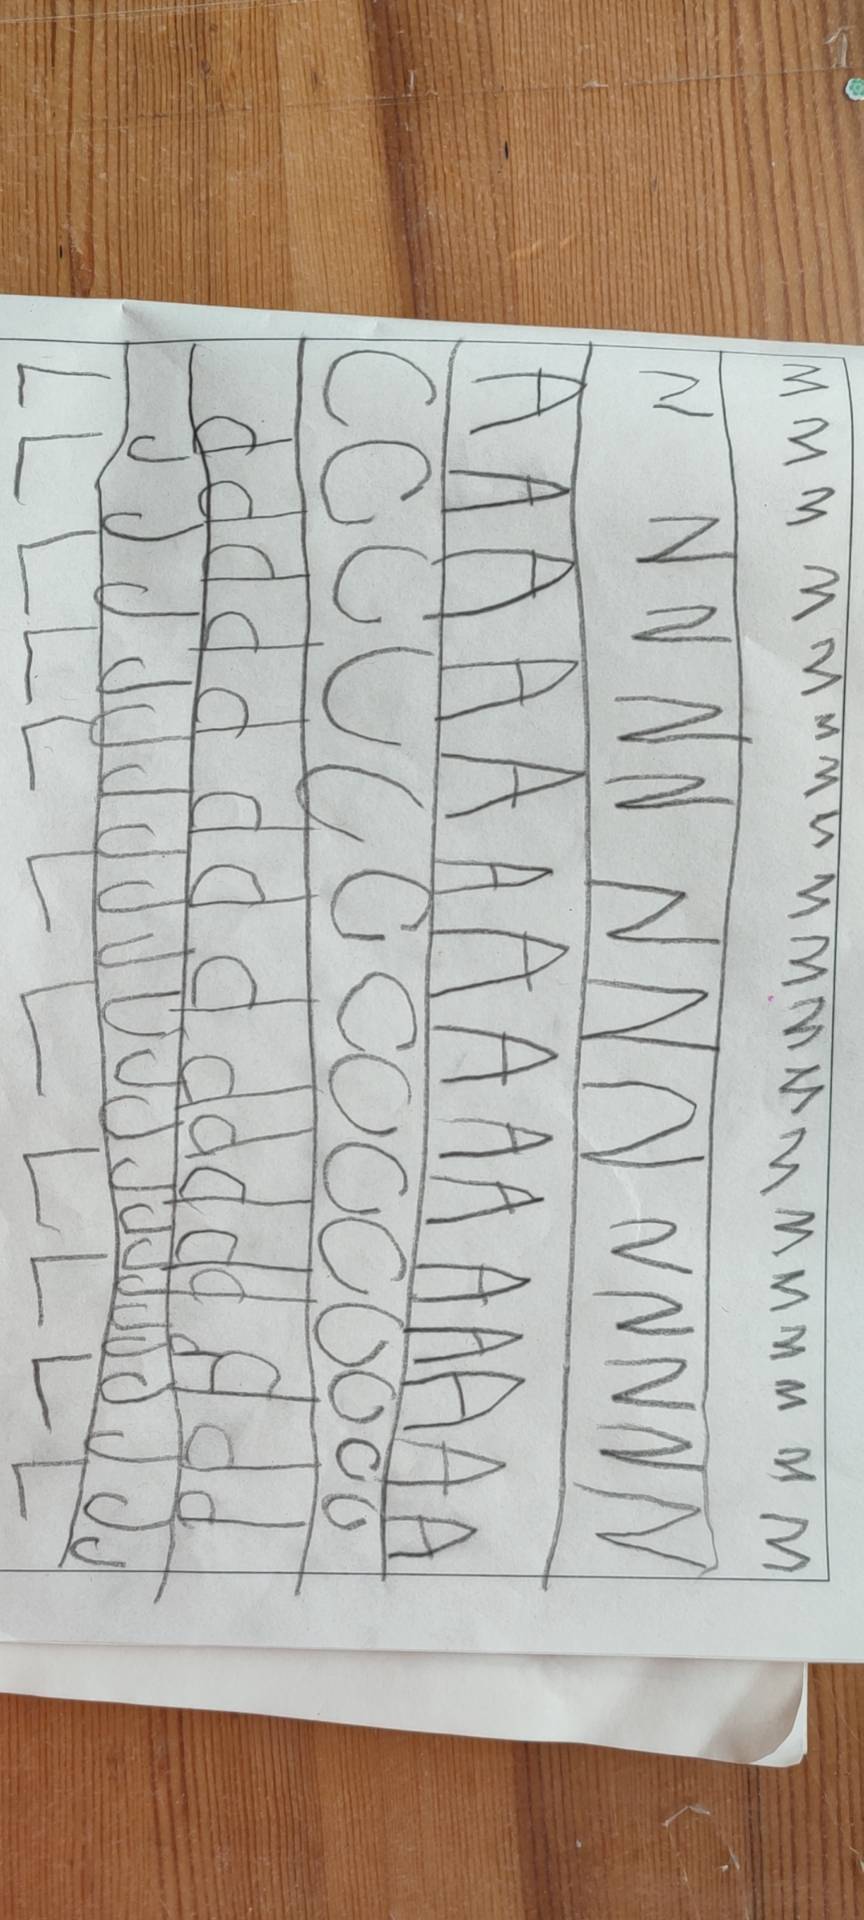 M M M M M M M M M M M M M M M M M M M
N N N N N N N N N N N N N
A A A A A A A A A A A A A A A
C C C C C C C C C C C C C C
d d d d d d d d d d d d d d d d
J J J J J J J J J J J J J J J J J J J J J J
L L L L L L L L L L L